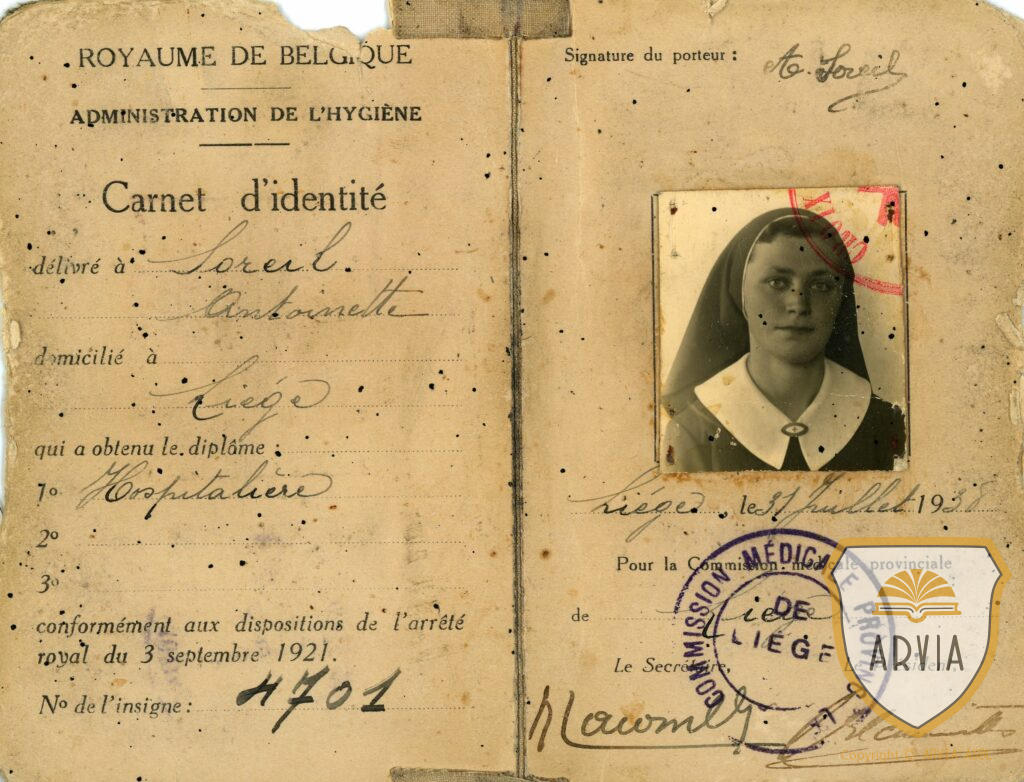 ROYAUME DE BELGIQUE
ADMINISTRATION DE L'HYGIÈNE
Carnet d'identité
délivré à Soreil
Antoinette
domicilié à
Liége
qui a obtenu le diplôme :
1º Hospitalière
2º
3º
conformément aux dispositions de l'arrêté
royal du 3 septembre 1921.
Nº de l'insigne : 4701
Signature du porteur :
A. Soreil
CROIX
Liége, le 31 Juillet 1938
Pour la Commission médicale provinciale
de Liége
COMMISSION MÉDICALE
DE
LIÉGE
Le Secrétaire,
ARVIA